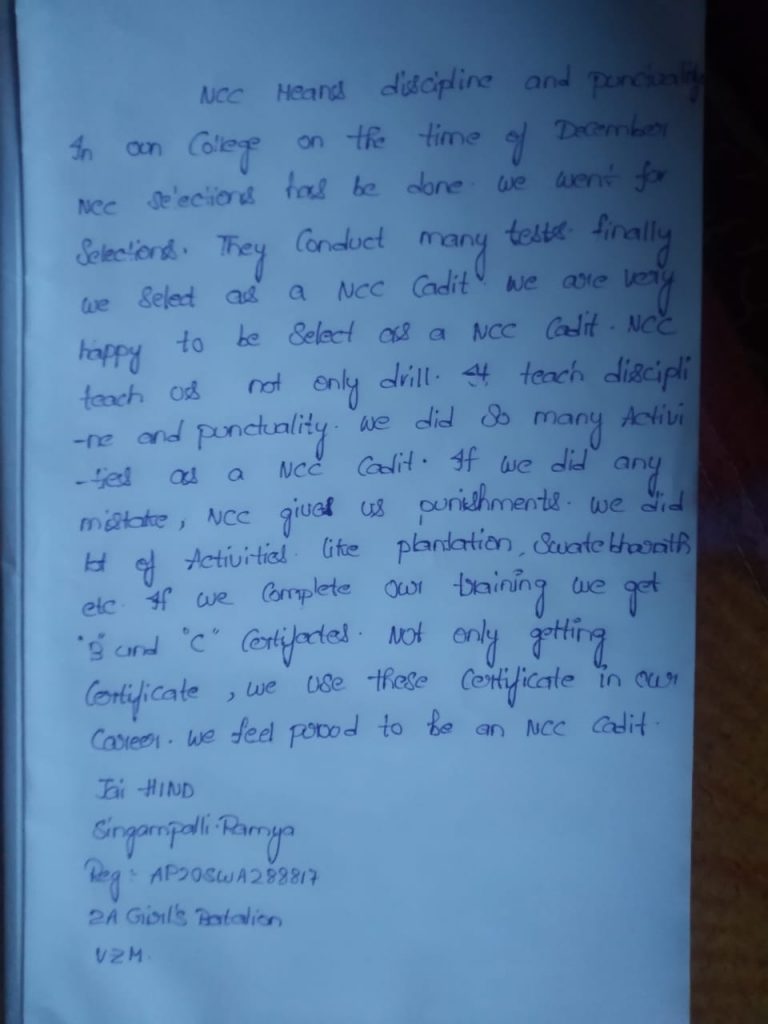 NCC Means discipline and punctuality
In our College on the time of December
NCC selections has be done. we went for
Selections. They Conduct many tests. finally
we Select as a NCC Cadit. we are very
happy to be Select as a NCC Cadit. NCC
teach us not only drill. It teach discipli
-ne and punctuality. we did so many Activi
-ties as a NCC Cadit. If we did any
mistake, NCC gives us punishments. we did
lot of Activities. like plantation, Swatebharath
etc. If we Complete our training we get
"B" and "C" Certifactes. Not only getting
Certificate, we use these Certificate in our
Career. we feel prood to be an NCC Cadit.
Jai HIND
Singampalli.Ramya
Reg: AP20SWA288817
2A Girl's Battalion
VZM.